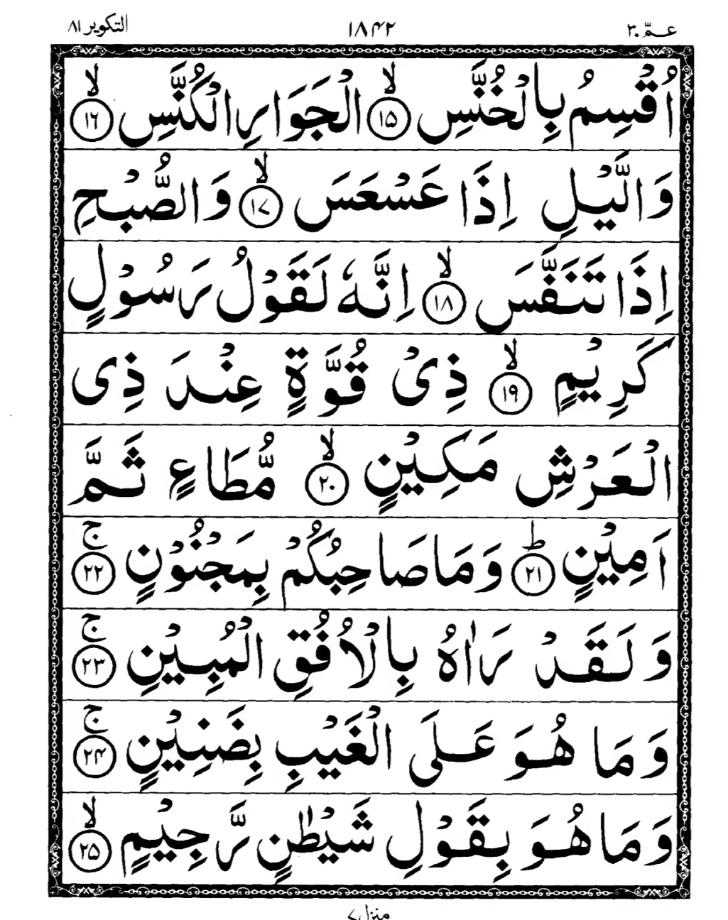 عـمّ ۳۰ ۱۸۴۲ التكوير ۸۱
اُقْسِمُ بِالْخُنَّسِ ۙ﴿۱۵﴾ الْجَوَارِ الْكُنَّسِ ۙ﴿۱۶﴾
وَالَّيْلِ اِذَا عَسْعَسَ ۙ﴿۱۷﴾ وَالصُّبْحِ
اِذَا تَنَفَّسَ ۙ﴿۱۸﴾ اِنَّهٗ لَقَوْلُ رَسُوْلٍ
كَرِيْمٍ ۙ﴿۱۹﴾ ذِیْ قُوَّةٍ عِنْدَ ذِی
الْعَرْشِ مَكِيْنٍ ۙ﴿۲۰﴾ مُّطَاعٍ ثَمَّ
اَمِيْنٍ ؕ﴿۲۱﴾ وَمَا صَاحِبُكُمْ بِمَجْنُوْنٍ ۚ﴿۲۲﴾
وَلَقَدْ رَاٰهُ بِالْاُفُقِ الْمُبِيْنِ ۚ﴿۲۳﴾
وَمَا هُوَ عَلَی الْغَيْبِ بِضَنِيْنٍ ۚ﴿۲۴﴾
وَمَا هُوَ بِقَوْلِ شَيْطٰنٍ رَّجِيْمٍ ۙ﴿۲۵﴾
منزل ۷